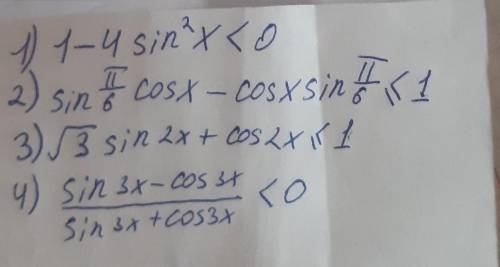 1) 1 - 4 sin² x < 0
2) sin π/6 cos x - cos x sin π/6 ⩽ 1
3) √3 sin 2x + cos 2x ⩽ 1
4) (sin 3x - cos 3x)/(sin 3x + cos 3x) < 0